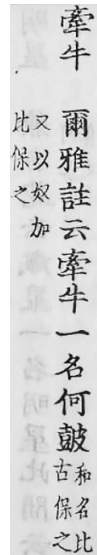 牽牛　爾雅註云牽牛一名何皷
和名比
古保之
又以奴加
比保之